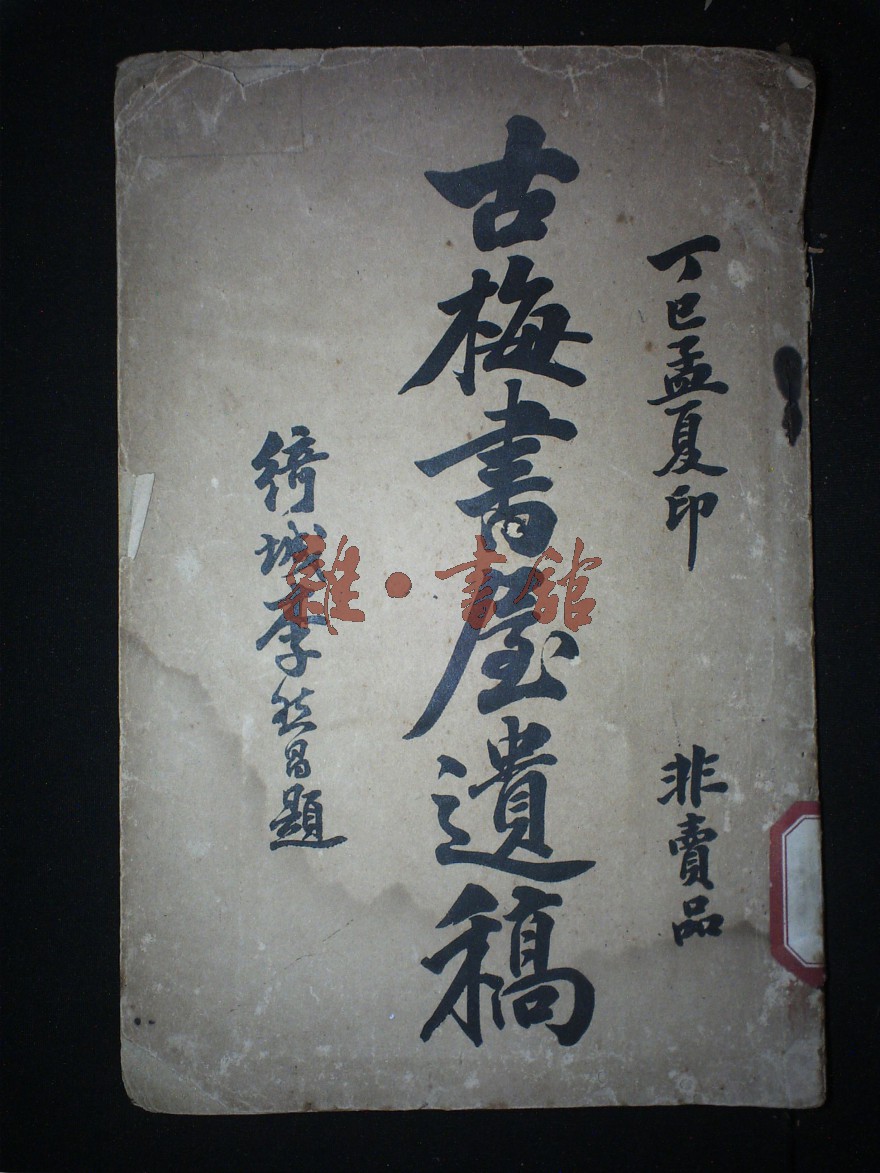 丁巳孟夏印
非賣品
古梅書屋遺稿
綺城李然昌題
雜·書館